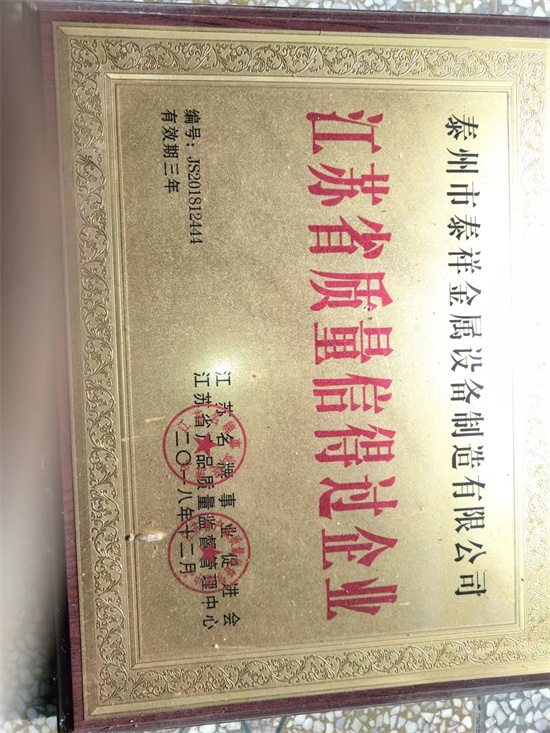 泰州市泰祥金属设备制造有限公司
江苏省质量信得过企业
编号：JS201812444
有效期三年
江苏名牌事业促进会
江苏省产品质量监督管理中心
二〇一八年十二月